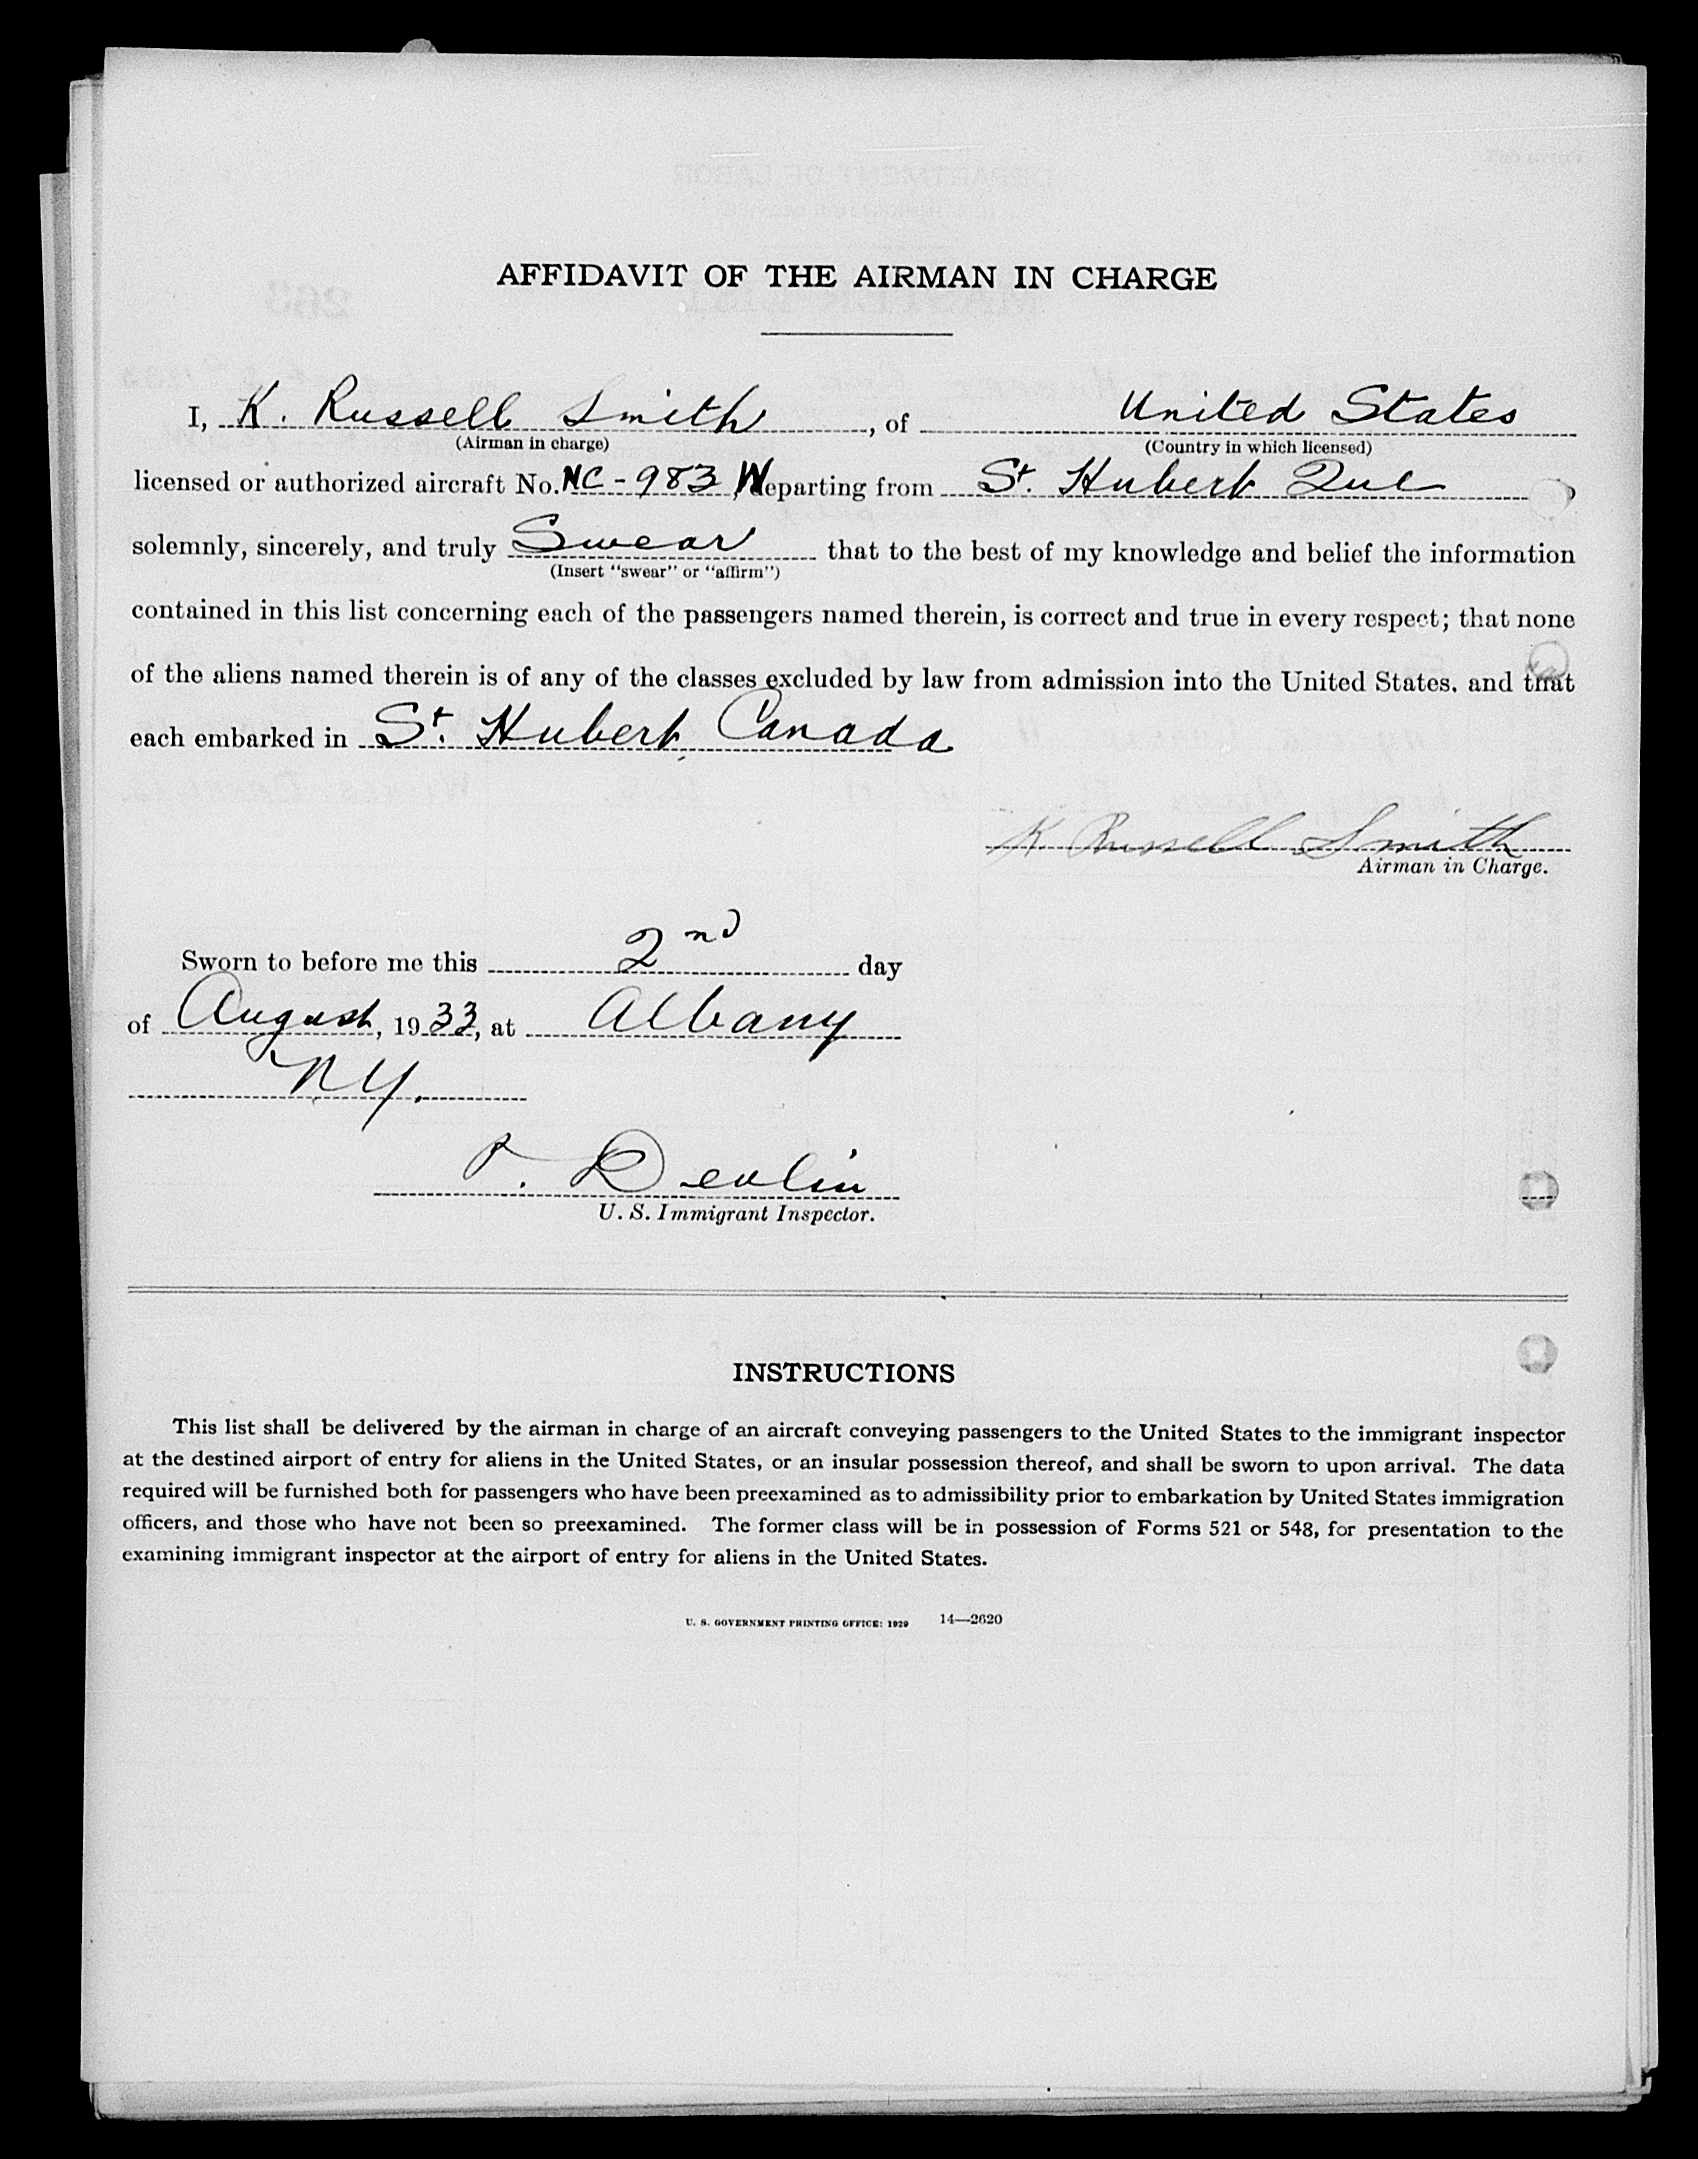 AFFIDAVIT OF THE AIRMAN IN CHARGE
I, K. Russell Smith, of United States
(Airman in charge) (Country in which licensed)
licensed or authorized aircraft No. NC-983 W, departing from St. Hubert Que
solemnly, sincerely, and truly Swear that to the best of my knowledge and belief the information
(Insert "swear" or "affirm")
contained in this list concerning each of the passengers named therein, is correct and true in every respect; that none
of the aliens named therein is of any of the classes excluded by law from admission into the United States, and that
each embarked in St. Hubert, Canada
K Russell Smith
Airman in Charge.
Sworn to before me this 2nd day
of August, 1933, at Albany
NY.
P. Devlin
U. S. Immigrant Inspector.
INSTRUCTIONS
This list shall be delivered by the airman in charge of an aircraft conveying passengers to the United States to the immigrant inspector
at the destined airport of entry for aliens in the United States, or an insular possession thereof, and shall be sworn to upon arrival. The data
required will be furnished both for passengers who have been preexamined as to admissibility prior to embarkation by United States immigration
officers, and those who have not been so preexamined. The former class will be in possession of Forms 521 or 548, for presentation to the
examining immigrant inspector at the airport of entry for aliens in the United States.
U. S. GOVERNMENT PRINTING OFFICE: 1929 14—2620